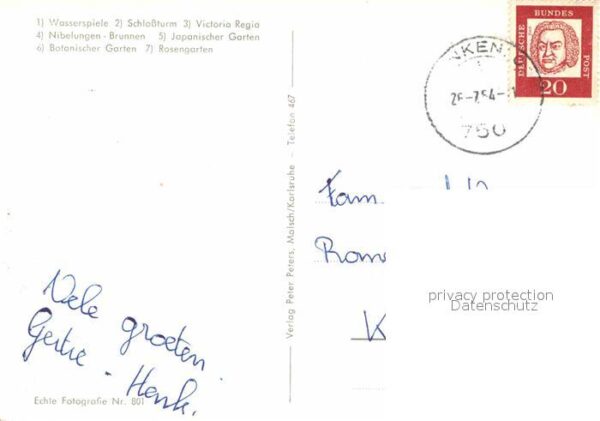 1) Wasserspiele 2) Schloßturm 3) Victoria Regia
4) Nibelungen-Brunnen 5) Japanischer Garten
6) Botanischer Garten 7) Rosengarten
DEUTSCHE BUNDES POST
20
750
Verlag Peter Peters, Malsch/Karlsruhe - Telefon 467
Fam.
privacy protection
Datenschutz
Vele groeten
Henk.
Echte Fotografie Nr. 801